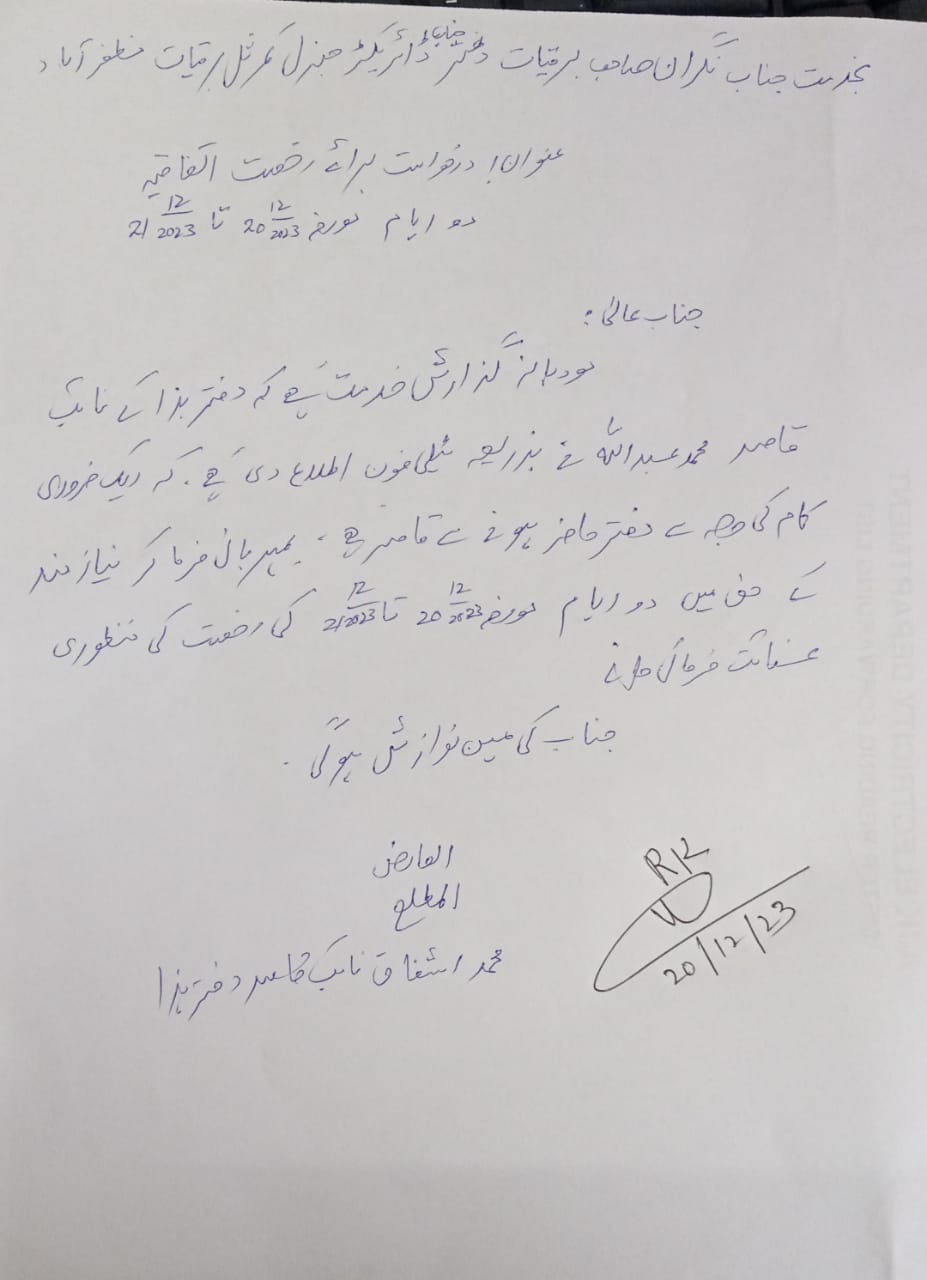 بخدمت جناب نگران صاحب برقیات دفتر جناب ڈائریکٹر جنرل کمرشل برقیات مظفرآباد
عنوان: درخواست برائے رخصت اتفاقیہ
دو ایام مورخہ 20 12/2023 تا 21 12/2023
جناب عالیٰ:
مودبانہ گذارش خدمت ہے کہ دفتر ہذا کے نائب
قاصد محمد عبداللہ نے بذریعہ ٹیلی فون اطلاع دی ہے۔ کہ ایک ضروری
کام کی وجہ سے دفتر حاضر ہونے سے قاصر ہے، بمہربانی فرما کر نیاز مند
کے حق میں دو ایام مورخہ 20 12/2023 تا 21 12/2023 کی رخصت کی منظوری
عنائت فرمائی جائے
جناب کی عین نوازش ہوگی۔
العارض
المطلع
محمد اشفاق نائب قاصد دفتر ہذا
20/12/23